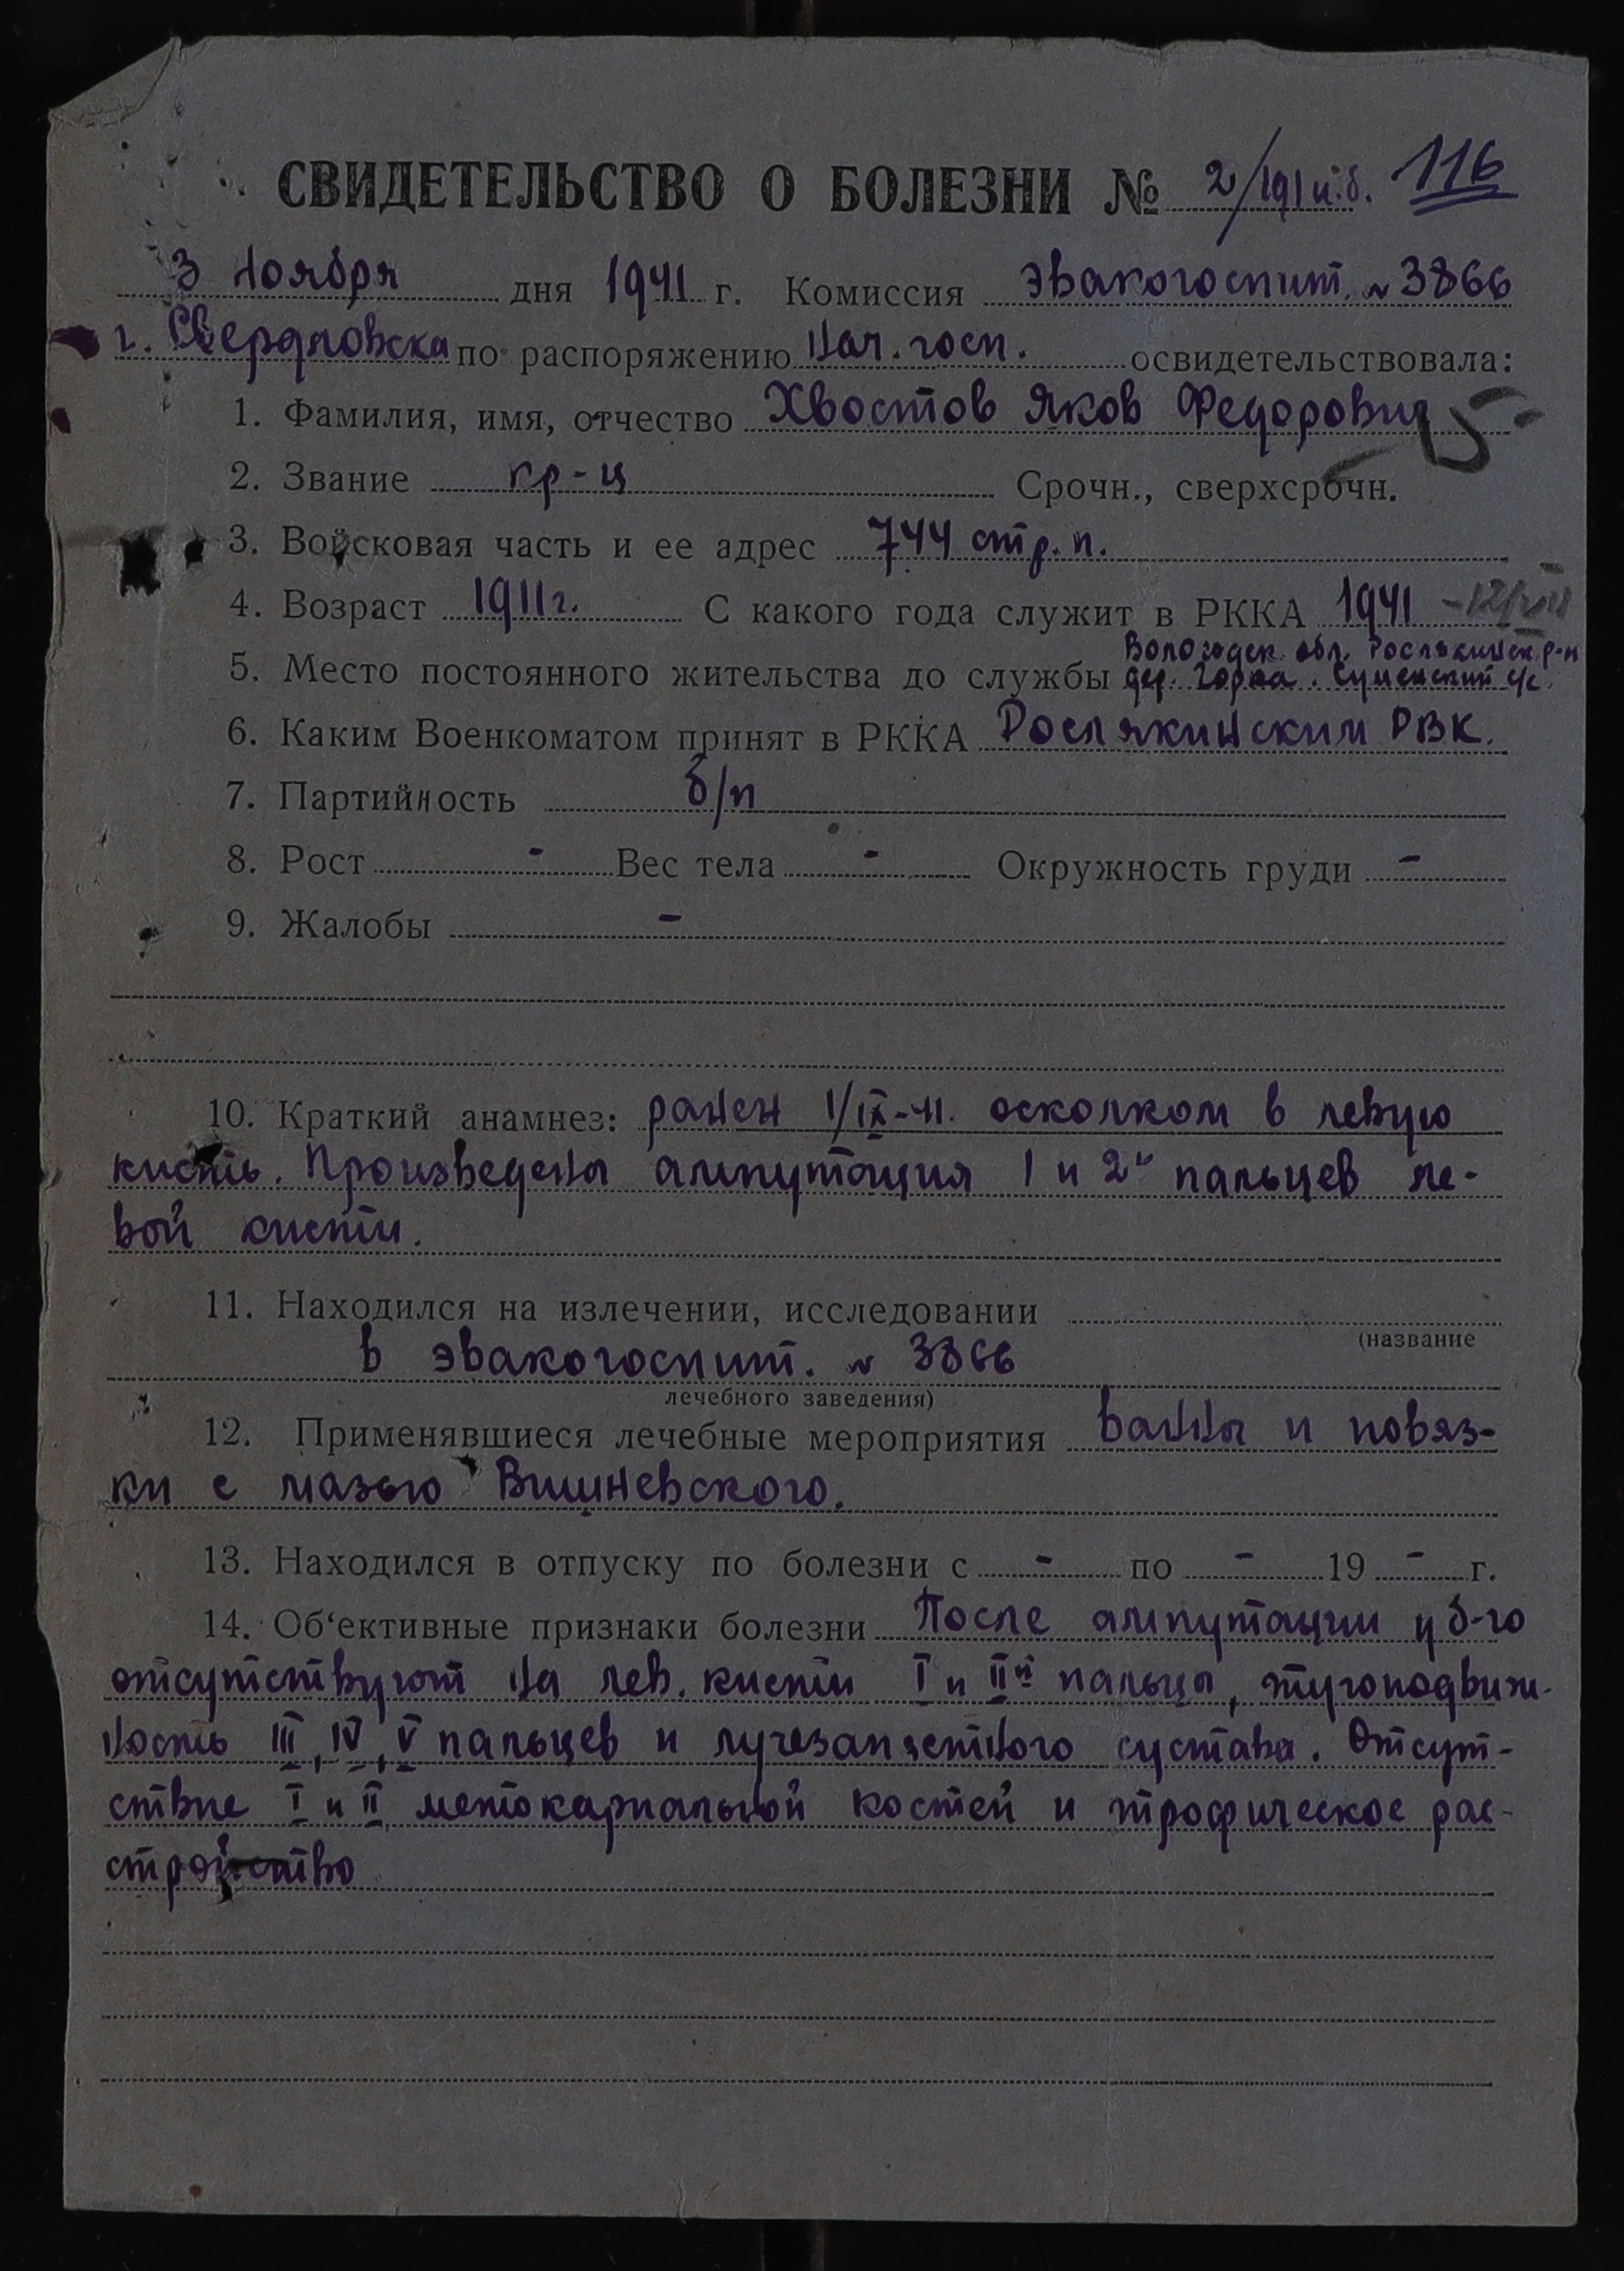 СВИДЕТЕЛЬСТВО О БОЛЕЗНИ № 2/191 и.б. 116
3 ноября дня 1941 г. Комиссия эвакогоспит. № 3866
г. Свердловска по распоряжению нач. госп. освидетельствовала:
1. Фамилия, имя, отчество Хвостов Яков Федорович
2. Звание кр-ц Срочн., сверхсрочн.
3. Войсковая часть и ее адрес 744 стр. п.
4. Возраст 1911 г. С какого года служит в РККА 1941
Вологодск. обл. Рослякинск. р-н
5. Место постоянного жительства до службы дер. Горка. с/с.
6. Каким Военкоматом принят в РККА Рослякинским РВК.
7. Партийность б/п
8. Рост - Вес тела - Окружность груди -
9. Жалобы -
10. Краткий анамнез: ранен 1/IX-41. осколком в левую
кисть. Произведена ампутация 1 и 2й пальцев ле-
вой кисти.
11. Находился на излечении, исследовании
(название
в эвакогоспит. № 3866
лечебного заведения)
12. Применявшиеся лечебные мероприятия ванны и повяз-
ки с мазью Вишневского.
13. Находился в отпуску по болезни с - по - 19 - г.
14. Об‘ективные признаки болезни После ампутации у б-го
отсутствуют на лев. кисти I и IIй пальцы, тугоподвиж-
ность III, IV, V пальцев и лучезапястного сустава. Отсут-
ствие I и II метокарпальной костей и трофическое рас-
стройство